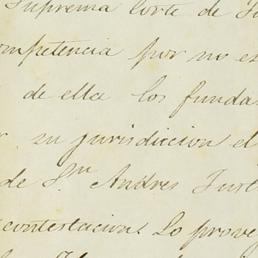 Suprema Corte de Ju
ompetencia por no es
de ella los funda
su jurisdiccion el
de Sn Andres Tuxt
contestacion. Lo prove